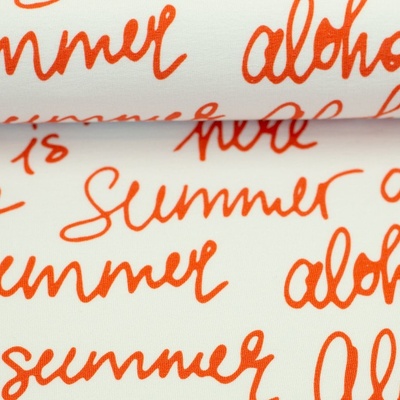 summer aloha
is here
summer
summer aloh
summer al